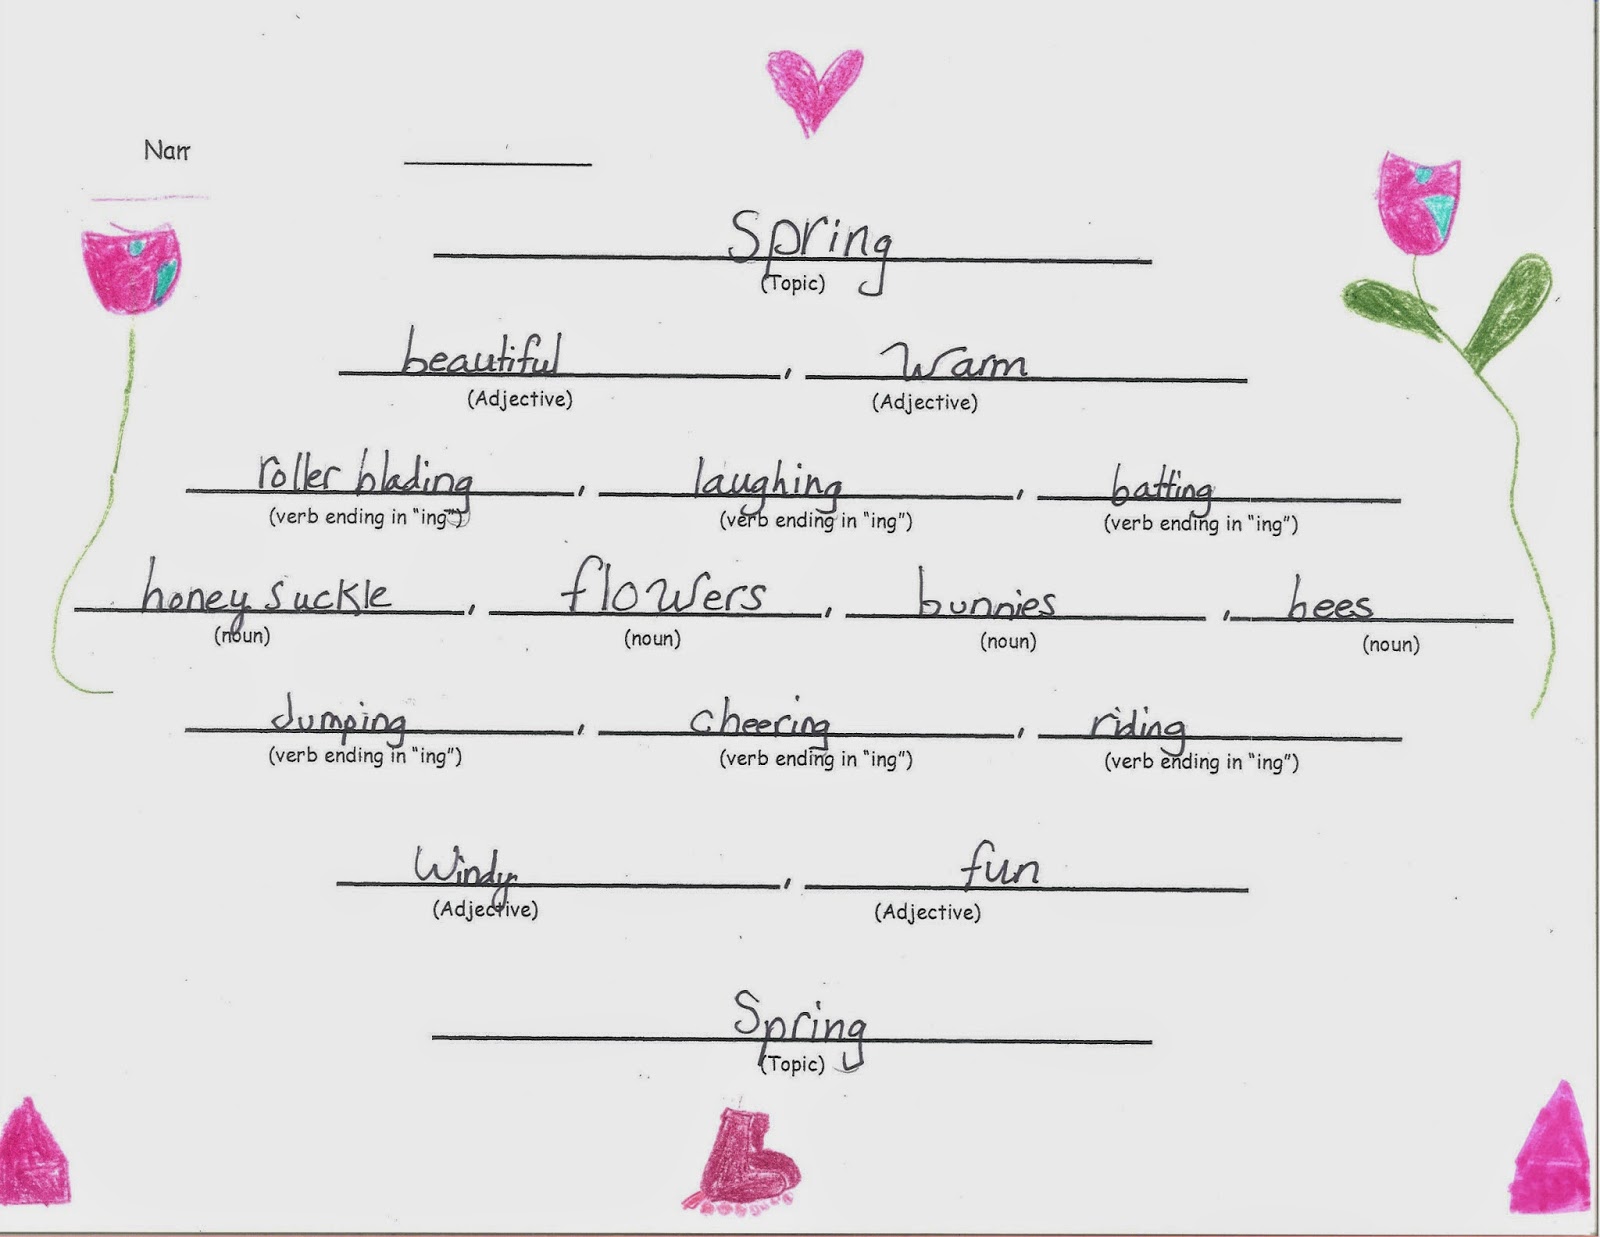 Nam
Spring
(Topic)
beautiful, warm
(Adjective) (Adjective)
roller blading, laughing, batting
(verb ending in "ing") (verb ending in "ing") (verb ending in "ing")
honey suckle, flowers, bunnies, bees
(noun) (noun) (noun) (noun)
Jumping, cheering, riding
(verb ending in "ing") (verb ending in "ing") (verb ending in "ing")
Windy, fun
(Adjective) (Adjective)
Spring
(Topic)